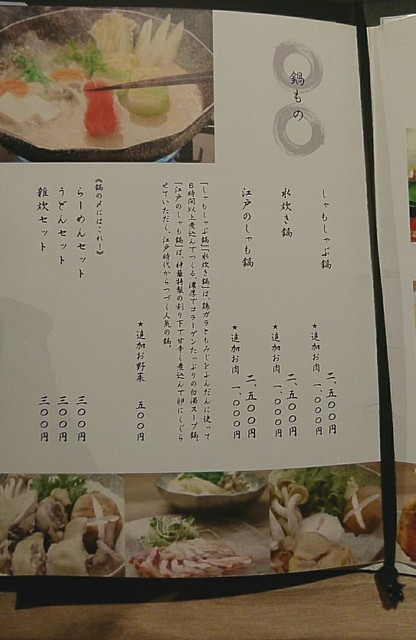 鍋もの
しゃもしゃぶ鍋
二、五〇〇円
★追加お肉 一、〇〇〇円
水炊き鍋
二、五〇〇円
★追加お肉 一、〇〇〇円
江戸のしゃも鍋
二、五〇〇円
★追加お肉 一、〇〇〇円
「しゃもしゃぶ鍋」「水炊き鍋」は、鶏ガラともみじをふんだんに使って
6時間以上煮込んでつくる、濃厚でコラーゲンたっぷりの白湯スープ鍋。
「江戸のしゃも鍋」は、特製の割り下で甘辛く煮込んで卵にくぐら
せていただく、江戸時代からつづく人気の鍋。
★追加お野菜 五〇〇円
《鍋の〆にはこれ!》
らーめんセット 三〇〇円
うどんセット 三〇〇円
雑炊セット 三〇〇円